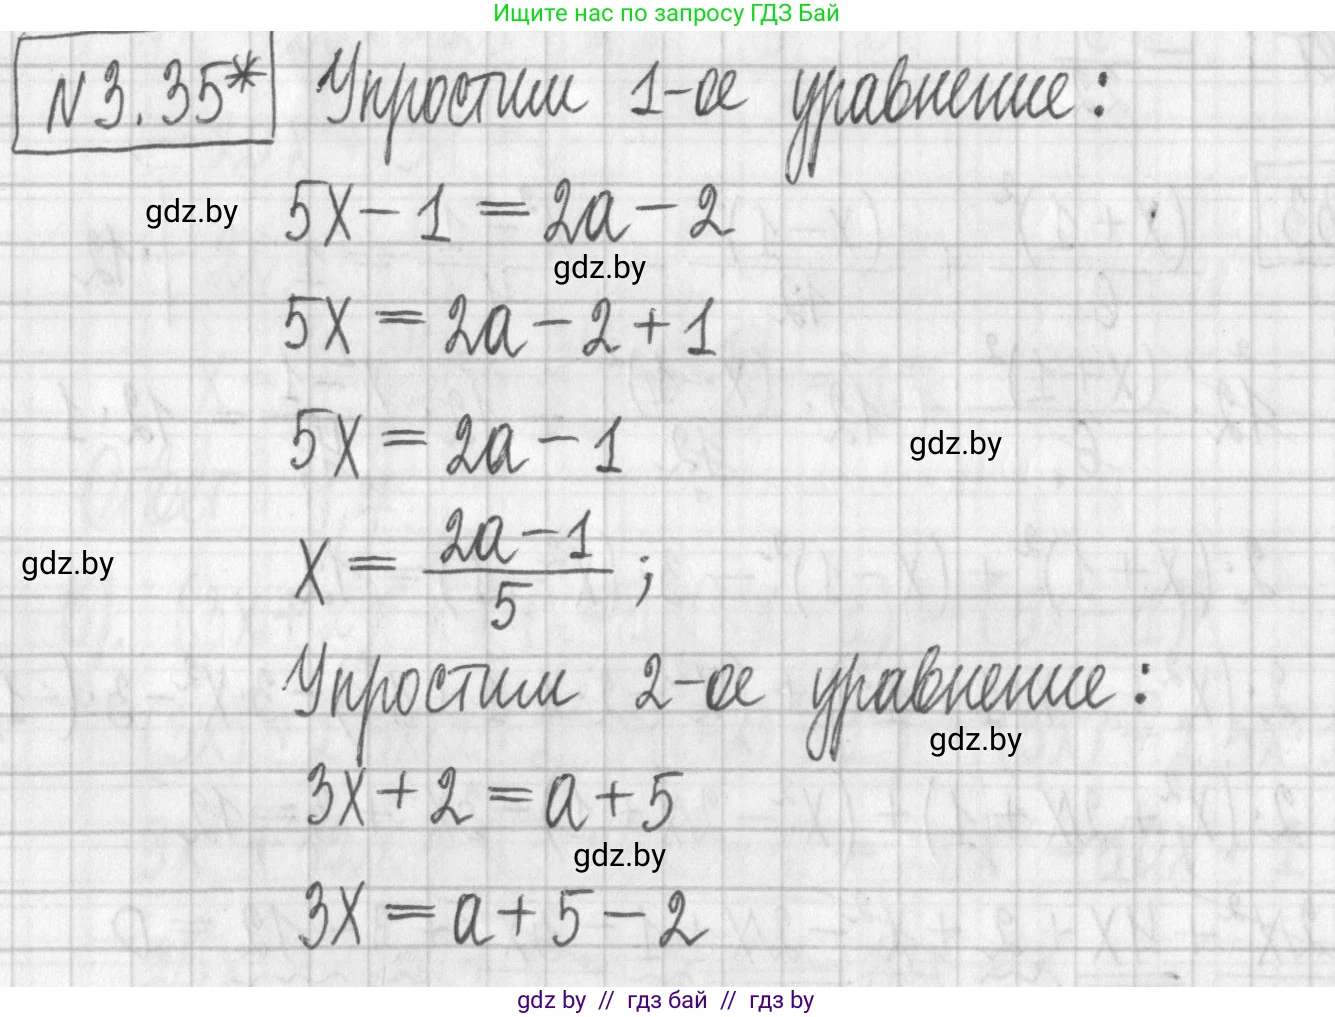 Ищите нас по запросу ГДЗ Бай
N 3.35* Упростим 1-ое уравнение:
gdz.by 5x - 1 = 2a - 2
gdz.by
5x = 2a - 2 + 1
5x = 2a - 1
gdz.by
gdz.by x = \frac{2a - 1}{5} ;
Упростим 2-ое уравнение:
gdz.by
3x + 2 = a + 5
gdz.by
3x = a + 5 - 2
gdz by // гдз бай // гдз by